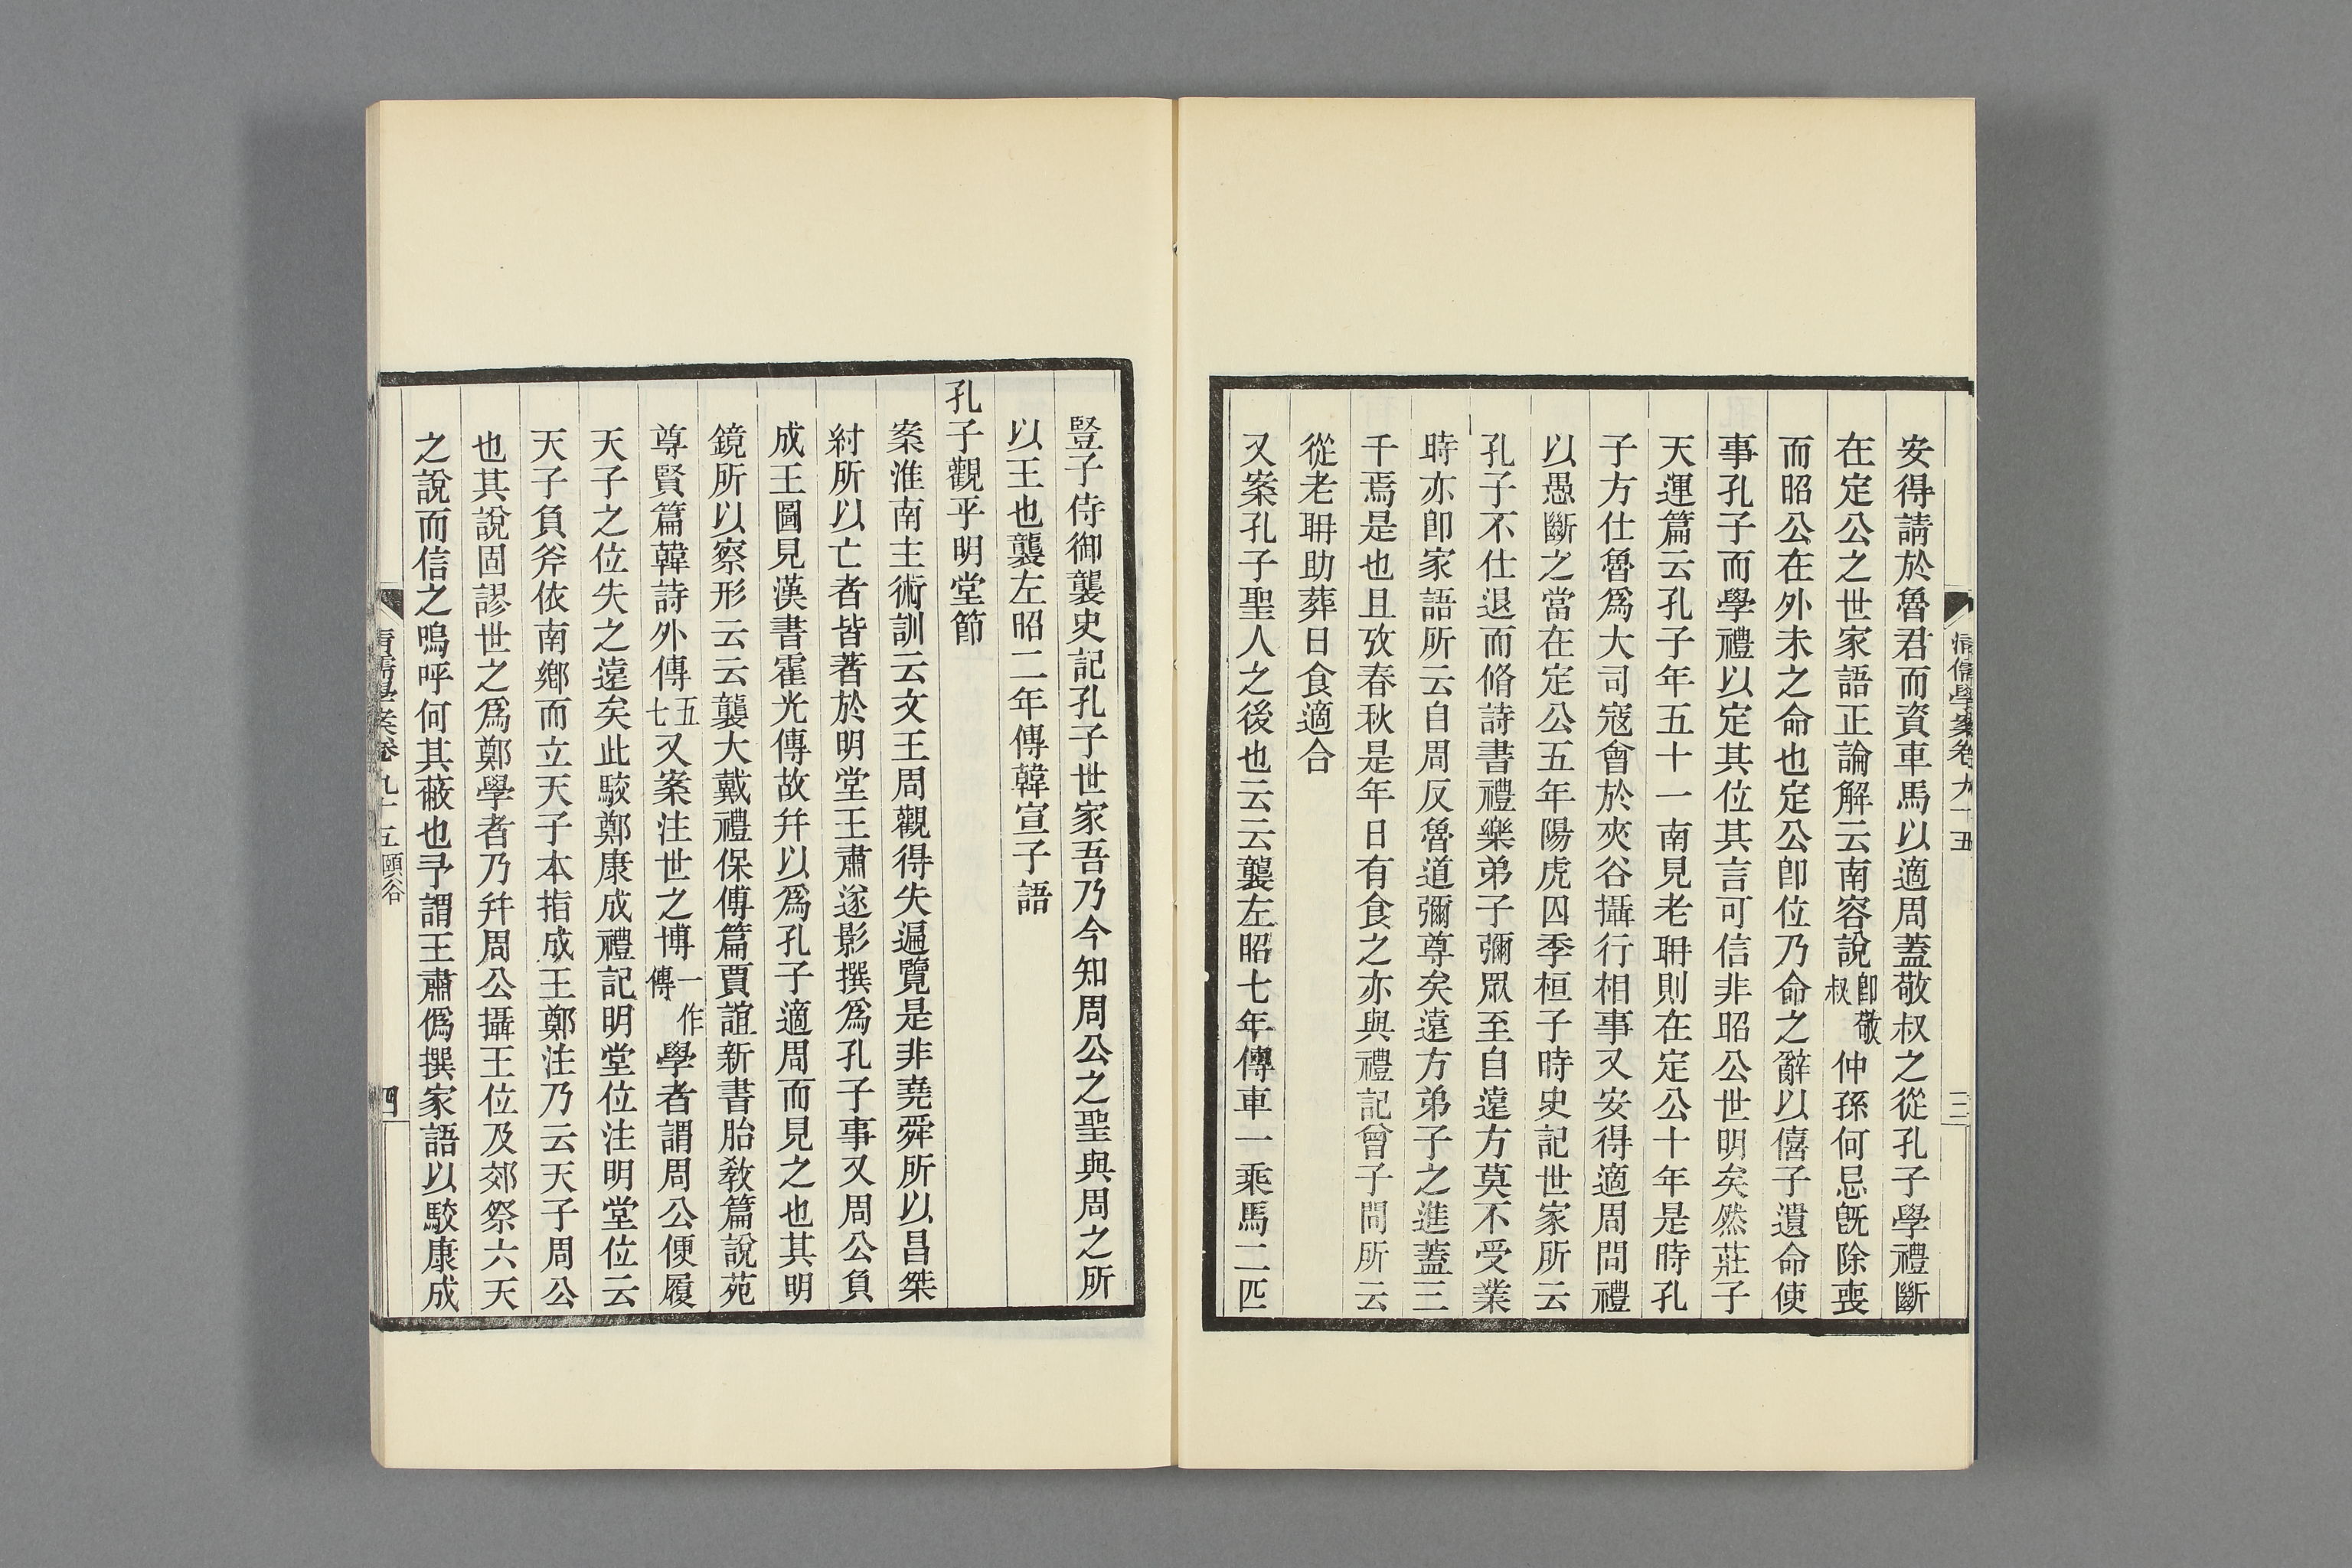 清儒學案卷九十五
三
安得請於魯君而資車馬以適周蓋敬叔之從孔子學禮斷
在定公之世家語正論解云南容說卽敬叔仲孫何忌旣除喪
而昭公在外未之命也定公卽位乃命之辭以僖子遺命使
事孔子而學禮以定其位其言可信非昭公世明矣然莊子
天運篇云孔子年五十一南見老聃則在定公十年是時孔
子方仕魯爲大司寇會於夾谷攝行相事又安得適周問禮
以愚斷之當在定公五年陽虎囚季桓子時史記世家所云
孔子不仕退而脩詩書禮樂弟子彌眾至自遠方莫不受業
時亦卽家語所云自周反魯道彌尊矣遠方弟子之進蓋三
千焉是也且攷春秋是年日有食之亦與禮記曾子問所云
從老聃助葬日食適合
又案孔子聖人之後也云云襲左昭七年傳車一乘馬二匹
豎子侍御襲史記孔子世家吾乃今知周公之聖與周之所
以王也襲左昭二年傳韓宣子語
孔子觀乎明堂節
案淮南主術訓云文王周觀得失遍覽是非堯舜所以昌桀
紂所以亡者皆著於明堂王肅遂影撰爲孔子事又周公負
成王圖見漢書霍光傳故幷以爲孔子適周而見之也其明
鏡所以察形云云襲大戴禮保傅篇賈誼新書胎敎篇說苑
尊賢篇韓詩外傳五七又案注世之博一作傳學者謂周公便履
天子之位失之遠矣此駮鄭康成禮記明堂位注明堂位云
天子負斧依南鄉而立天子本指成王鄭注乃云天子周公
也其說固謬世之爲鄭學者乃幷周公攝王位及郊祭六天
之說而信之嗚呼何其蔽也予謂王肅僞撰家語以駮康成
清儒學案卷九十五 頤谷
四